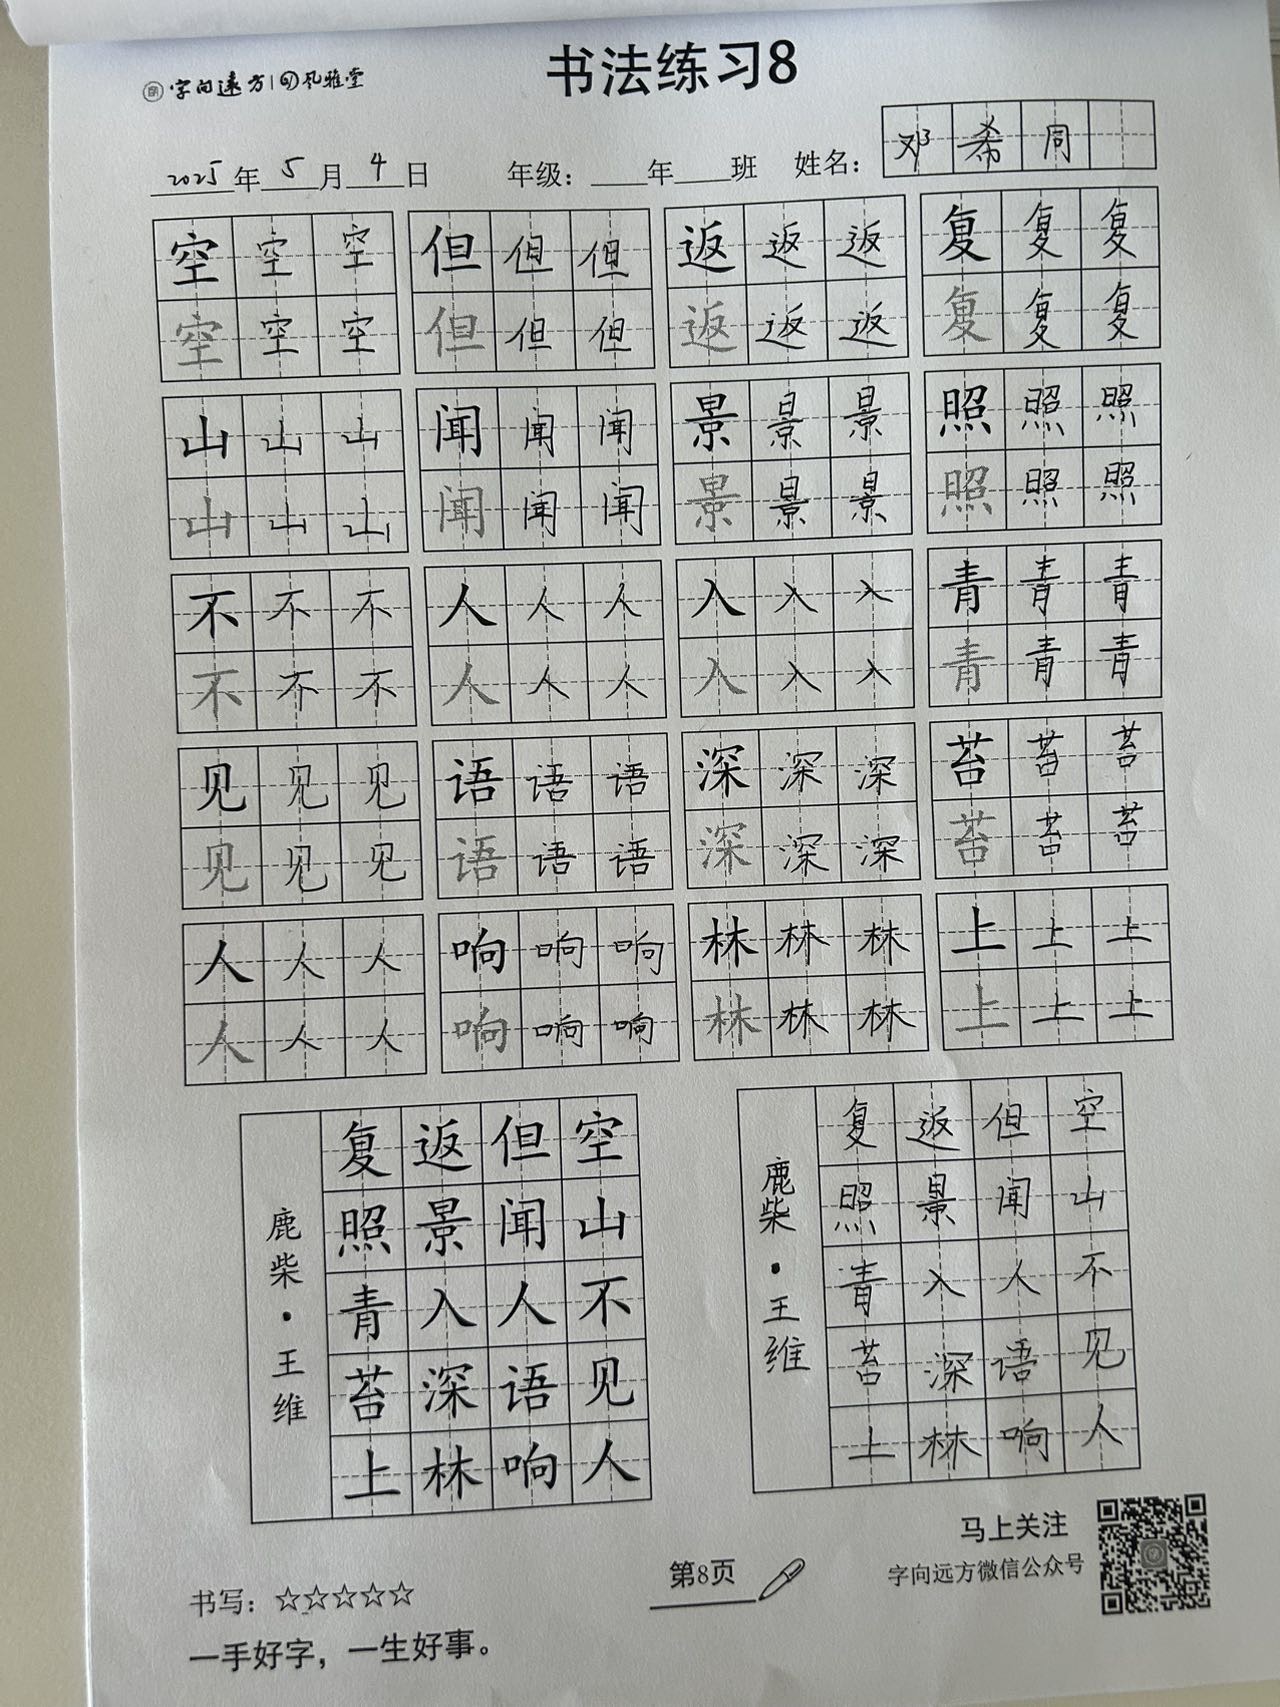 字向远方 风雅堂
书法练习8
2025年5月4日 年级：____年____班 姓名：邓希同
空空空 但但但 返返返 复复复
空空空 但但但 返返返 复复复
山山山 闻闻闻 景景景 照照照
山山山 闻闻闻 景景景 照照照
不不不 人人人 入入入 青青青
不不不 人人人 入入入 青青青
见见见 语语语 深深深 苔苔苔
见见见 语语语 深深深 苔苔苔
人人人 响响响 林林林 上上上
人人人 响响响 林林林 上上上
空山不见人
但闻人语响
返景入深林
复照青苔上
鹿柴·王维
空山不见人
但闻人语响
返景入深林
复照青苔上
鹿柴·王维
马上关注
字向远方微信公众号
第8页
书写：☆☆☆☆☆
一手好字，一生好事。